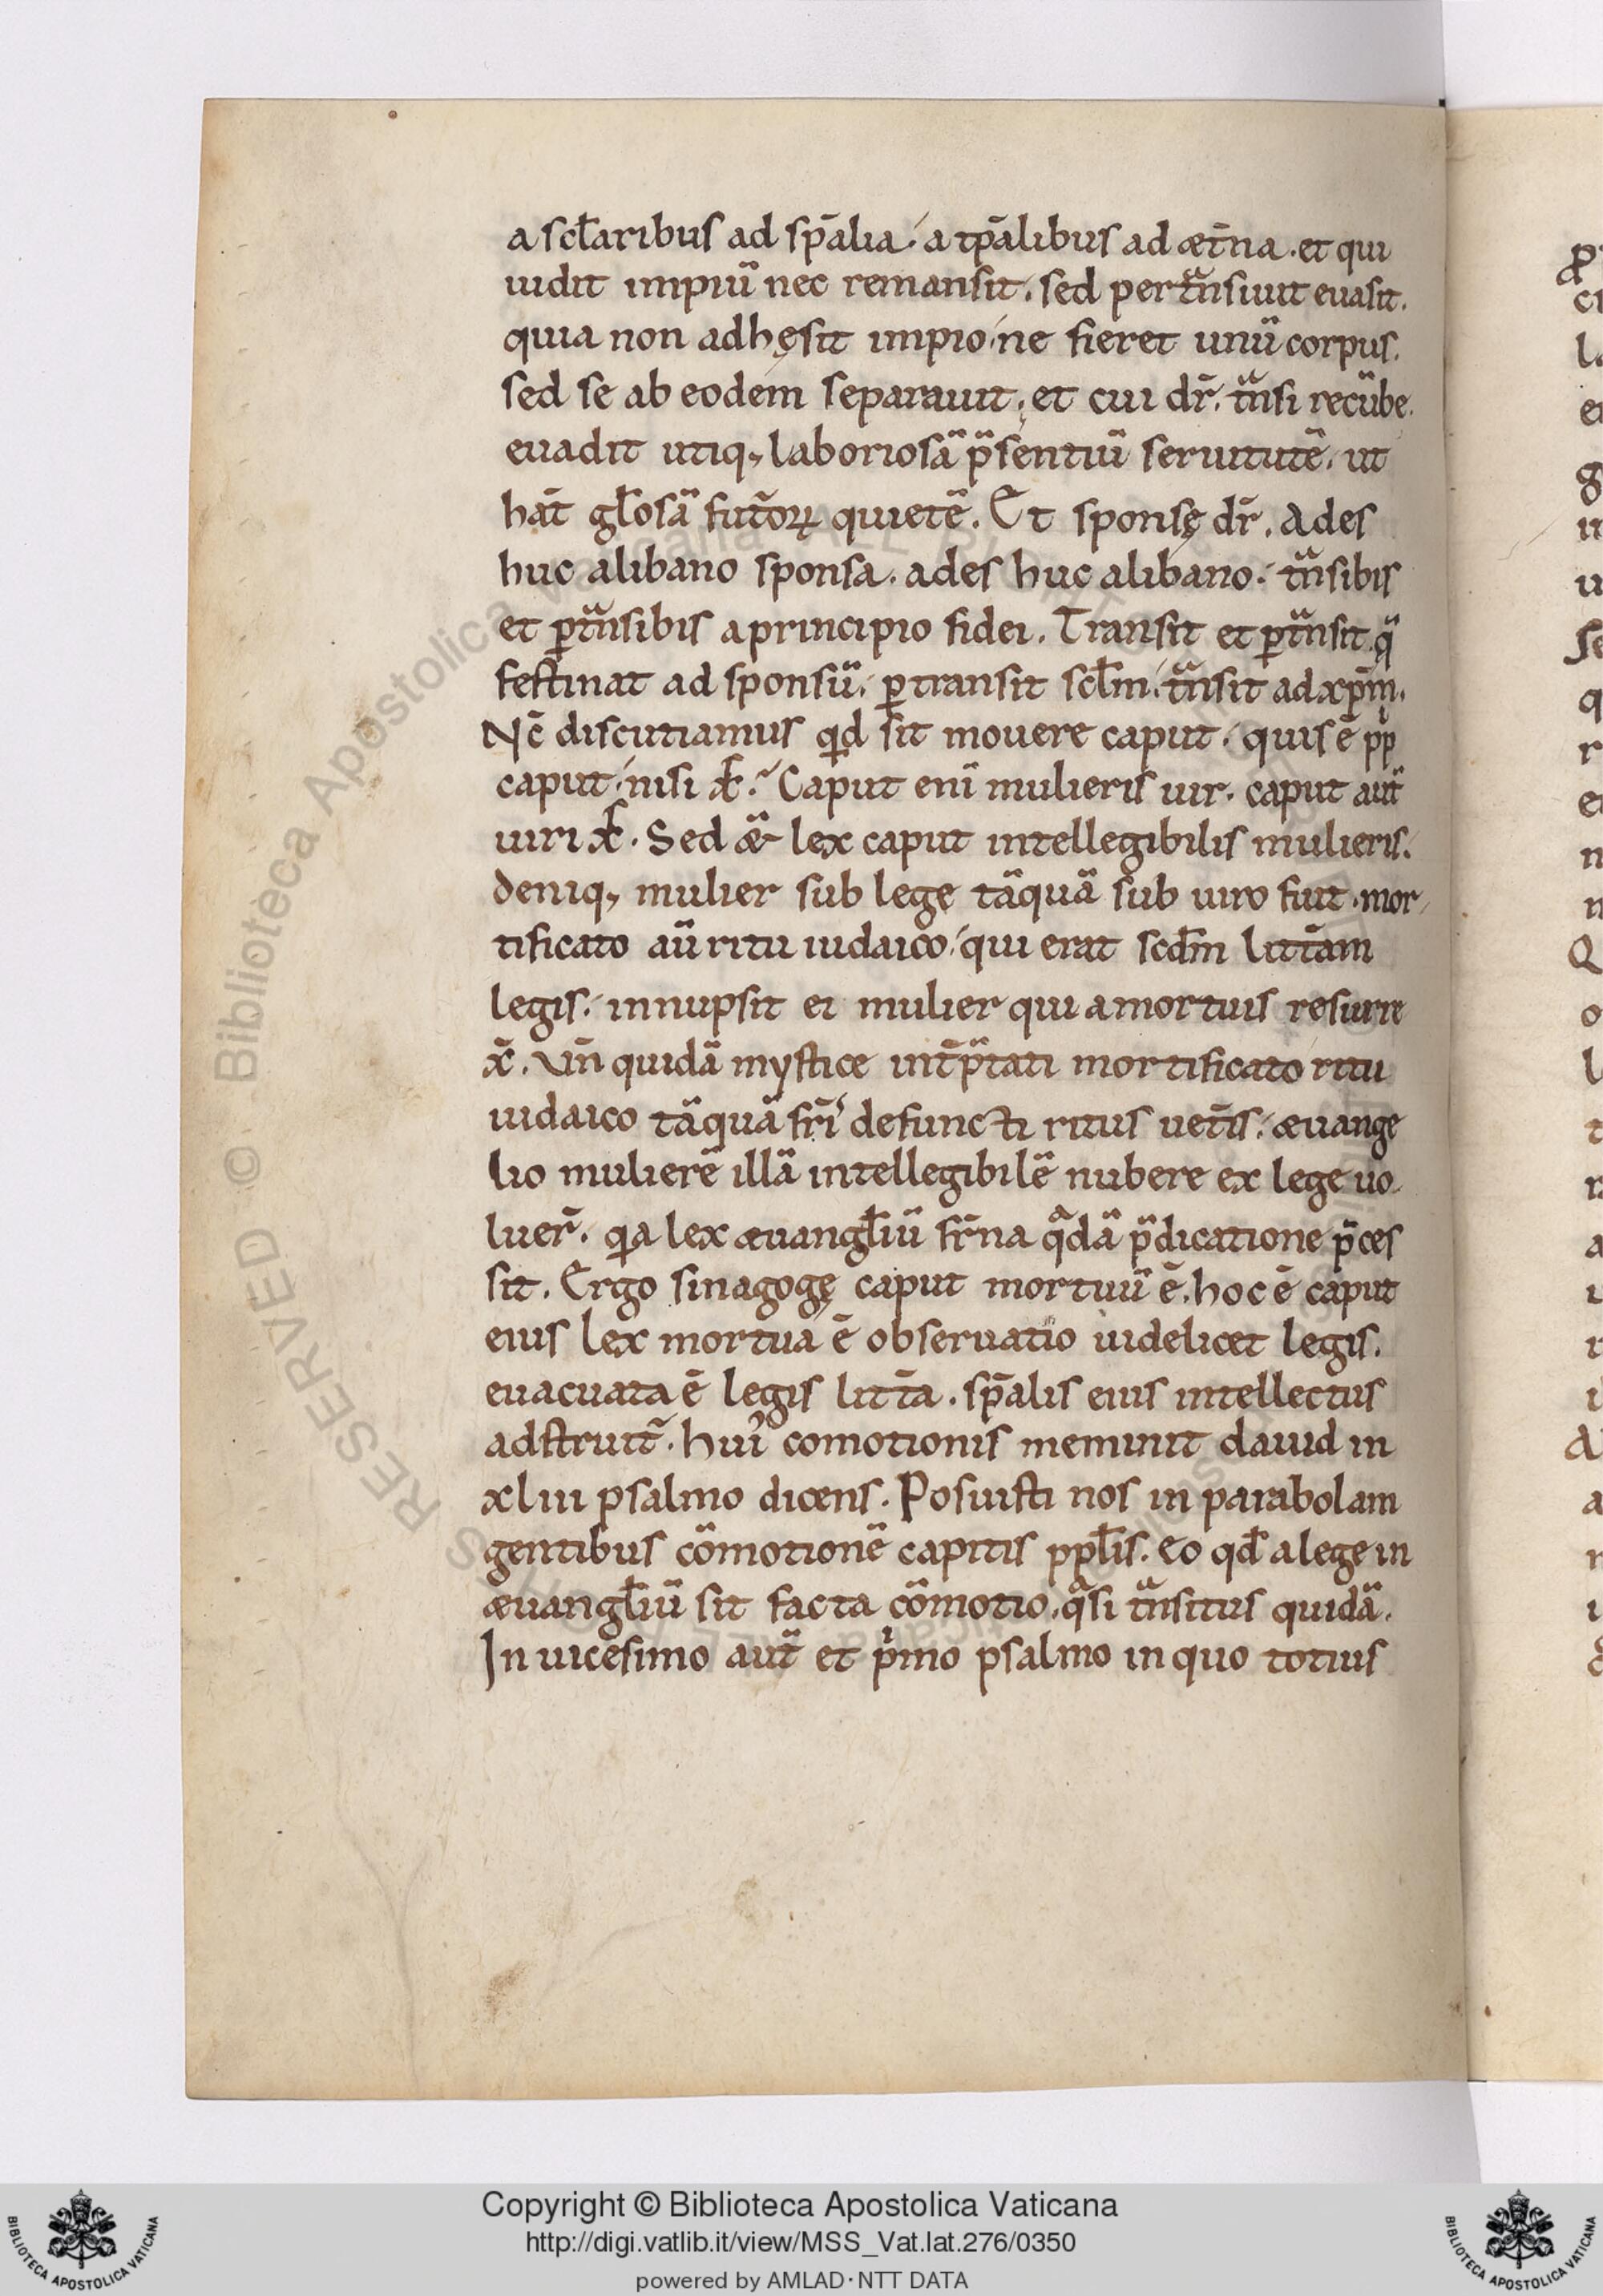 a scl̄aribus ad sp̄alia. a tp̄alibus ad æt̄na. et qui
uidit impiū nec remansit. sed pertͣnsiuit euasit.
quia non adhęsit impio. ne fieret unū corpus.
sed se ab eodem separauit. et cui dr̄. tͣnsi recūbe.
euadit utiq, laboriosā p̄sentiū seruitutē. ut
hāt gl̄osā futōꝝ quietē. Et sponsę dr̄. Ades
huc alibano sponsa. ades huc alibano. tͣnsibis
et ꝑtͣnsibis a principio fidei. Transit et ꝑtͣnsit. q̄
festinat ad sponsū. ꝑtransit scl̄m. tͣnsit ad xp̄m.
Nc̄ discutiamus qͥd sit mouere caput. quis ē pͥp
caput. nisi xp̄s. Caput eni mulieris uir. caput aut̄
uiri xp̄s. Sed æ lex caput intellegibilis mulieris.
deniq, mulier sub lege tāquā sub uiro fuit. mor
tificato aū ritu iudaico. qui erat scdm̄ litt̄am
legis. innupsit ei mulier qui a mortuis resurre
x̄. Vn̄ quidā mystice int̄p̄tati mortificato ritu
iudaico tāquā fr̄i defuncti ritus uet̄is. æuange
lio mulierē illā intellegibilē nubere ex lege uo
luer̄. qͥa lex æuangl̄iū fr̄na qͣdā p̄dicatione p̄ces
sit. Ergo sinagogę caput mortuū ē. hoc ē caput
eius lex mortua ē obseruatio uidelicet legis.
euacuata ē legis litt̄a. sp̄alis eius intellectus
adstruit̄. huiꝰ comotionis meminit dauid in
xliii psalmo dicens. Posuisti nos in parabolam
gentibus cōmotionē capitis ppl̄is. Eo qd̄ a lege in
æuangl̄iū sit facta cōmotio. qͣsi tͣnsitus quidā.
In uicesimo aut̄ et pͥmo psalmo in quo totius
Copyright © Biblioteca Apostolica Vaticana
http://digi.vatlib.it/view/MSS_Vat.lat.276/0350
powered by AMLAD·NTT DATA
BIBLIOTECA APOSTOLICA VATICANA
BIBLIOTECA APOSTOLICA VATICANA